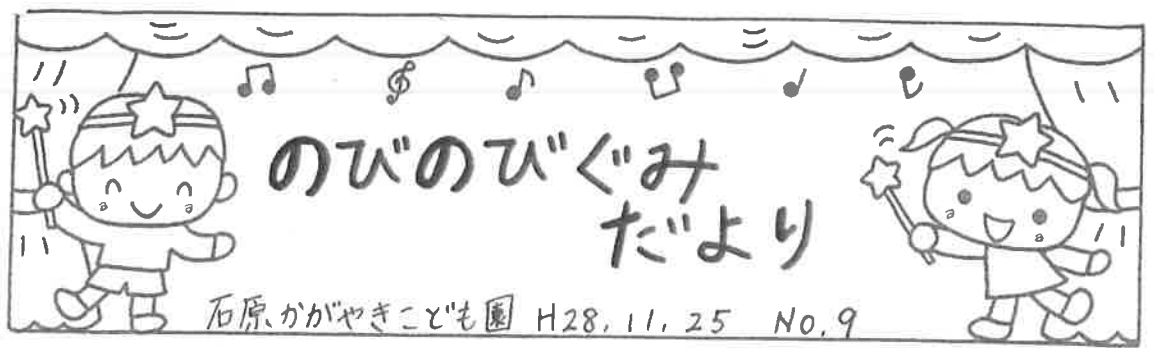 のびのびぐみ
だより
石原かがやきこども園 H28.11.25 No.9